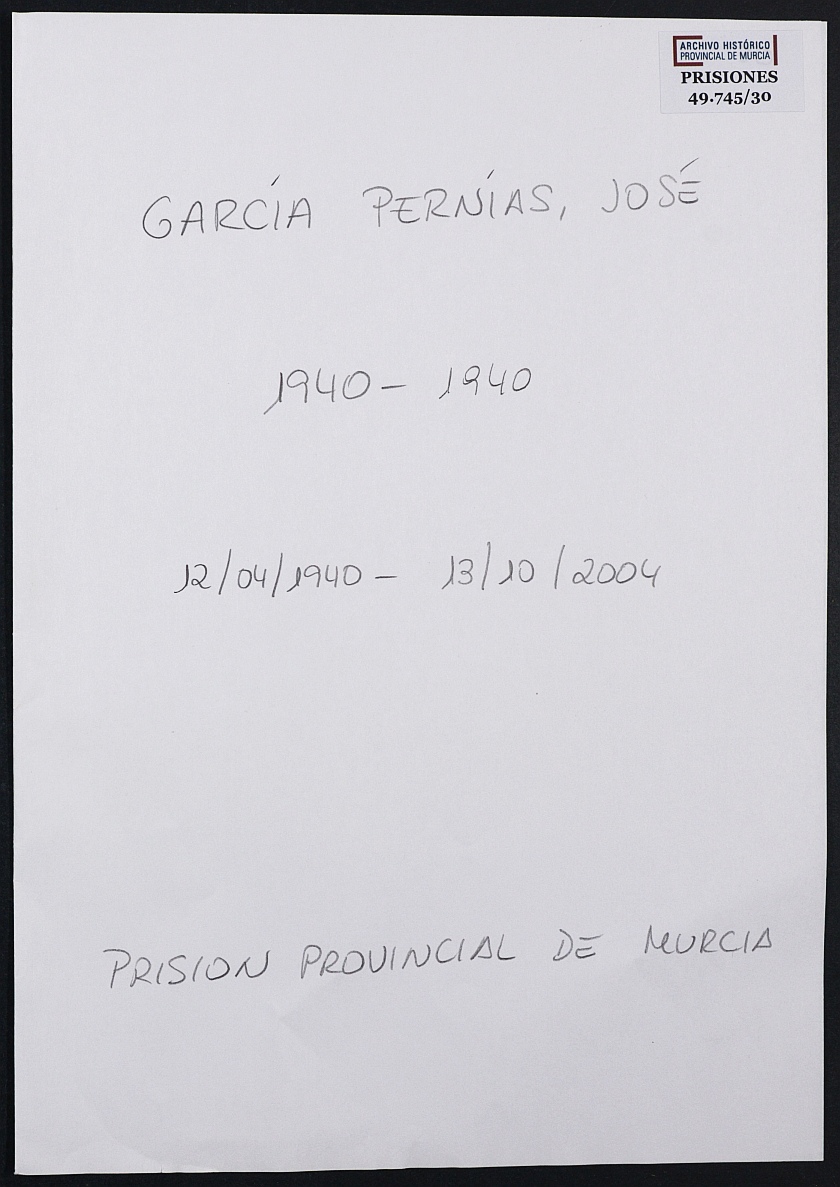 ARCHIVO HISTÓRICO
PROVINCIAL DE MURCIA
PRISIONES
49.745/30
GARCÍA PERNÍAS, JOSÉ
1940 - 1940
12/04/1940 - 13/10/2004
PRISION PROVINCIAL DE MURCIA